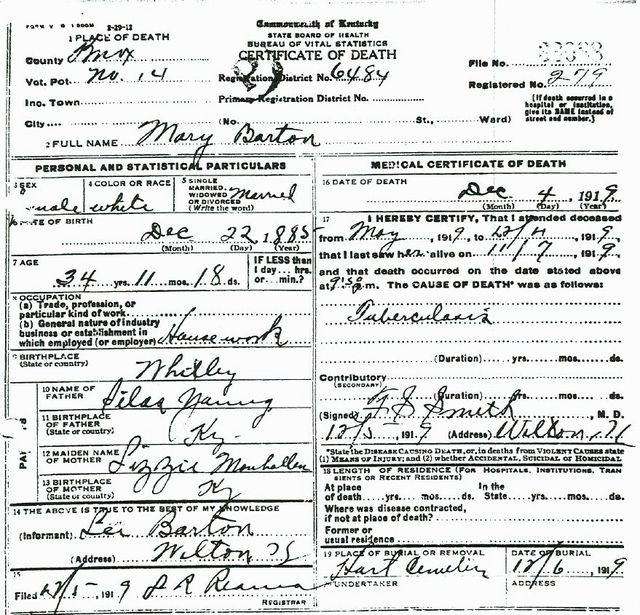 FORM V S 1 500M 2-29-12
Commonwealth of Kentucky
1 PLACE OF DEATH
STATE BOARD OF HEALTH
BUREAU OF VITAL STATISTICS
CERTIFICATE OF DEATH
County Knox
File No.
Vot. Pot. No. 14
Registration District No. 6484
Registered No. 279
Ino. Town
Primary Registration District No.
(If death occurred in a hospital or institution, give its NAME instead of street and number.)
City (No. St., Ward)
2 FULL NAME Mary Barton
PERSONAL AND STATISTICAL PARTICULARS
3 SEX
male
4 COLOR OR RACE
white
5 SINGLE
MARRIED,
WIDOWED
OR DIVORCED
(Write the word)
Married
DATE OF BIRTH
Dec 22, 1885
(Month) (Day) (Year)
7 AGE
34 yrs. 11 mos. 18 ds.
IF LESS than
1 day... hrs.
or... min.?
8 OCCUPATION
(a) Trade, profession, or
particular kind of work
(b) General nature of industry
business or establishment in
which employed (or employer) Housework
9 BIRTHPLACE
(State or country)
Whitley
10 NAME OF
FATHER
Silas Young
11 BIRTHPLACE
OF FATHER
(State or country)
Ky
12 MAIDEN NAME
OF MOTHER
Lizzie
13 BIRTHPLACE
OF MOTHER
(State or country)
Ky
14 THE ABOVE IS TRUE TO THE BEST OF MY KNOWLEDGE
(Informant) Lee Barton
(Address) Wilton
15
Filed 12/5, 1919
REGISTRAR
MEDICAL CERTIFICATE OF DEATH
16 DATE OF DEATH
Dec 4, 1919
(Month) (Day) (Year)
17 I HEREBY CERTIFY, That I attended deceased
from May, 1919, to 12/4, 1919,
that I last saw her alive on 11/7, 1919,
and that death occurred on the date stated above
at 9:30 p.m. The CAUSE OF DEATH* was as follows:
Tuberculosis
(Duration) yrs. mos. ds.
Contributory
(SECONDARY)
(Duration) yrs. mos. ds.
(Signed) F S Smith, M. D.
12/5, 1919 (Address) Wilton
*State the DISEASE CAUSING DEATH, or, in deaths from VIOLENT CAUSES state
(1) MEANS OF INJURY; and (2) whether ACCIDENTAL, SUICIDAL or HOMICIDAL
18 LENGTH OF RESIDENCE (FOR HOSPITALS, INSTITUTIONS, TRAN
SIENTS OR RECENT RESIDENTS)
At place of death yrs. mos. ds. In the State yrs. mos. ds.
Where was disease contracted,
if not at place of death?
Former or
usual residence
19 PLACE OF BURIAL OR REMOVAL
Hart
DATE OF BURIAL
12/6, 1919
UNDERTAKER
ADDRESS